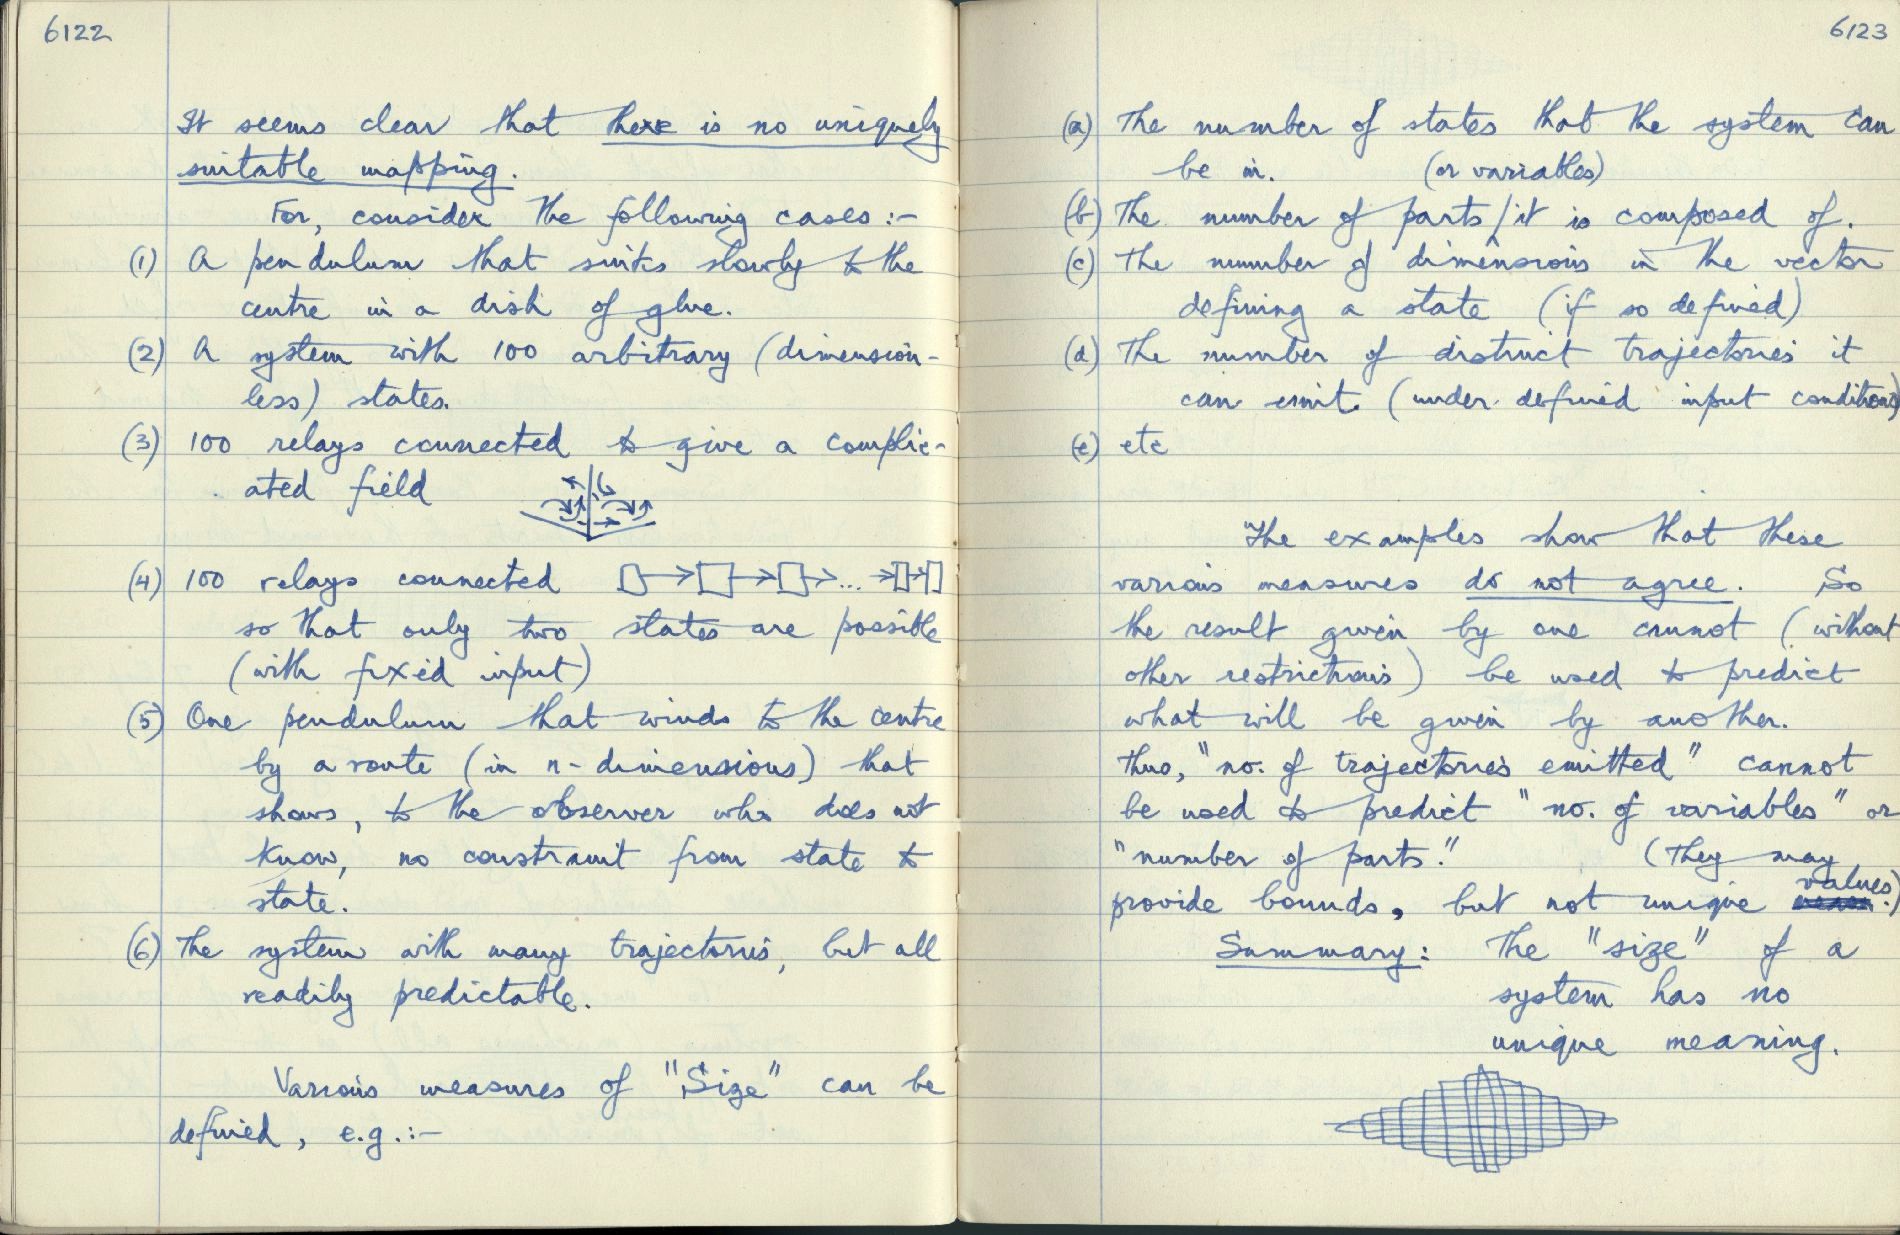 6122
It seems clear that there is no uniquely
suitable mapping.
For, consider the following cases:-
(1) A pendulum that sinks slowly to the
centre in a dish of glue.
(2) A system with 100 arbitrary (dimension-
less) states.
(3) 100 relays connected to give a complic-
ated field
(4) 100 relays connected
so that only two states are possible
(with fixed input)
(5) One pendulum that winds to the centre
by a route (in n-dimensions) that
shows, to the observer who does not
know, no constraint from state to
state.
(6) The system with many trajectories, but all
readily predictable.
Various measures of "Size" can be
defined, e.g.:-
6123
(a) The number of states that the system can
be in.
(or variables)
(b) The number of parts/it is composed of.
(c) The number of dimensions in the vector
defining a state (if so defined)
(d) The number of distinct trajectories it
can emit. (under defined input conditions)
(e) etc
The examples show that these
various measures do not agree. So
the result given by one cannot (without
other restrictions) be used to predict
what will be given by another.
Thus, "no. of trajectories emitted" cannot
be used to predict "no. of variables" or
"number of parts." (They may
provide bounds, but not unique values.)
Summary: The "size" of a
system has no
unique meaning.